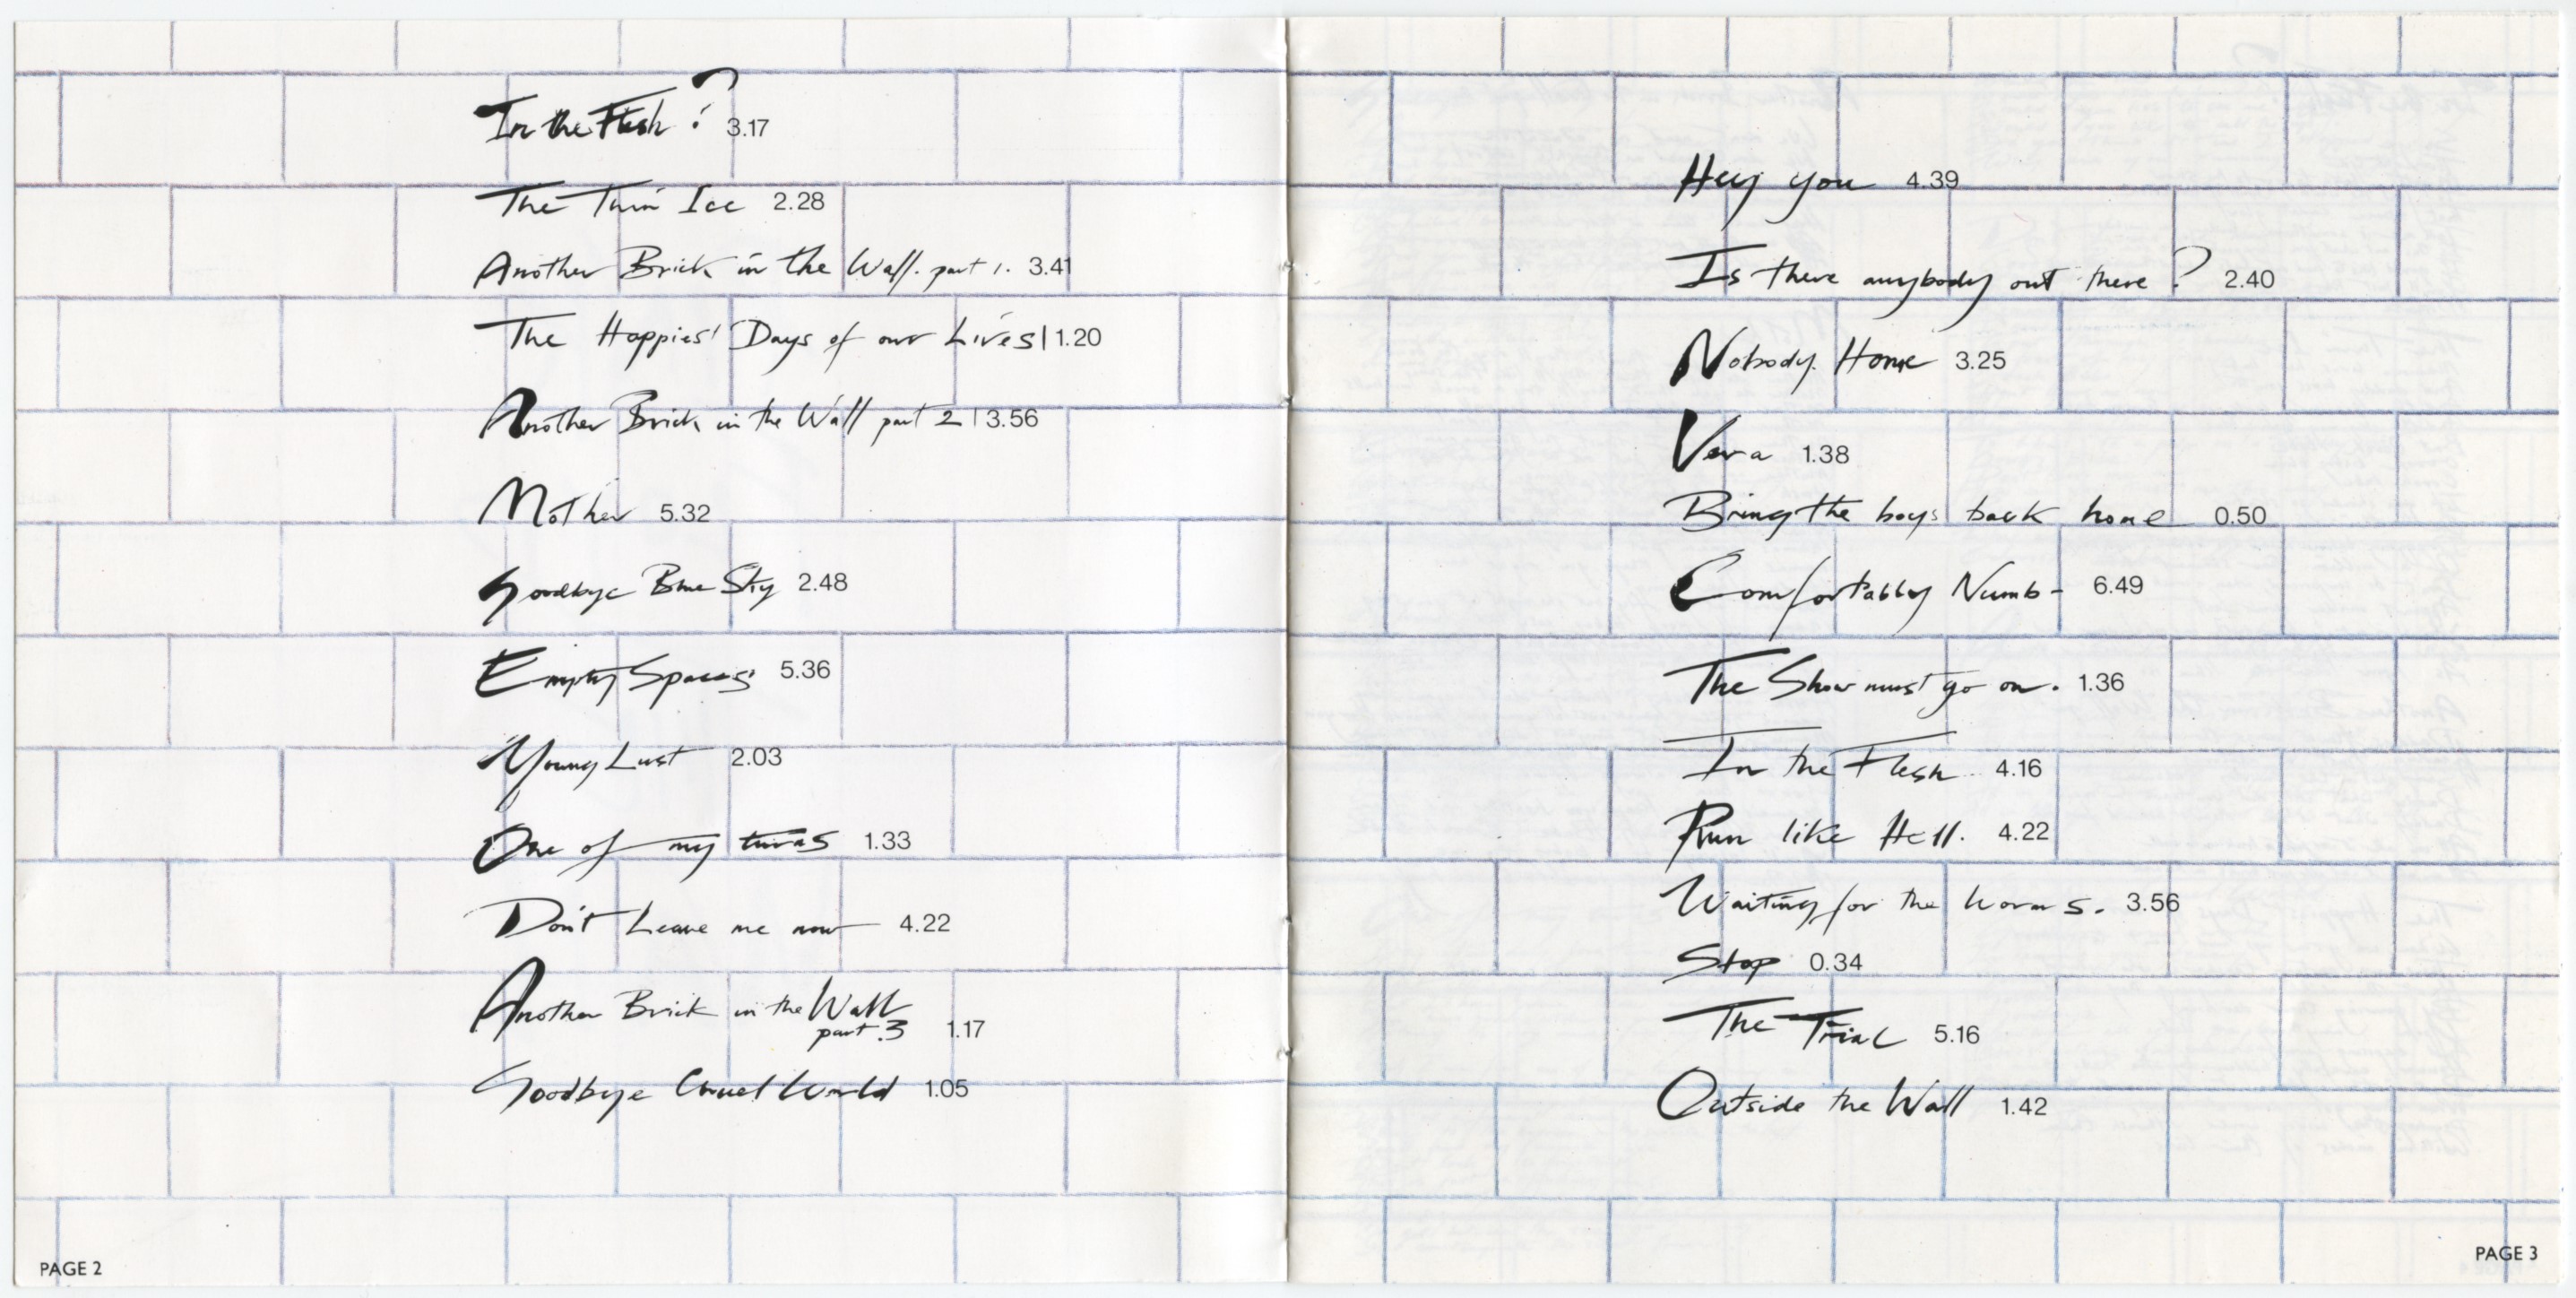 In the Flesh? 3.17
The Thin Ice 2.28
Another Brick in the Wall. part 1. 3.41
The Happies' Days of our Lives 1.20
Another Brick in the Wall part 2 3.56
Mother 5.32
Goodbye Blue Sky 2.48
Empty Spaces 5.36
Young Lust 2.03
One of my turns 1.33
Don't Leave me now 4.22
Another Brick in the Wall
part.3 1.17
Goodbye Cruel World 1.05
PAGE 2
Hey you 4.39
Is there anybody out there? 2.40
Nobody Home 3.25
Vera 1.38
Bring the boys back home 0.50
Comfortably Numb - 6.49
The Show must go on. 1.36
In the Flesh 4.16
Run like Hell. 4.22
Waiting for the worms. 3.56
Stop 0.34
The Trial 5.16
Outside the Wall 1.42
PAGE 3